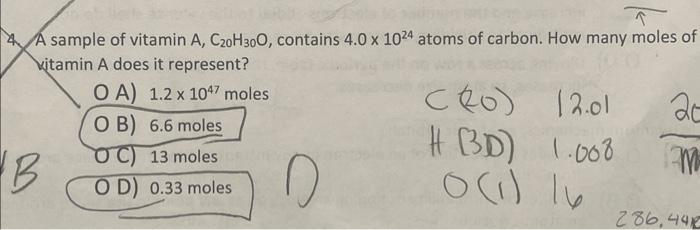 4. A sample of vitamin A, C₂₀H₃₀O, contains 4.0 x 10²⁴ atoms of carbon. How many moles of
vitamin A does it represent?
O A) 1.2 x 10⁴⁷ moles
O B) 6.6 moles
O C) 13 moles
O D) 0.33 moles
B
D
C (20) 12.01
H (30) 1.008
O (1) 16
286.44